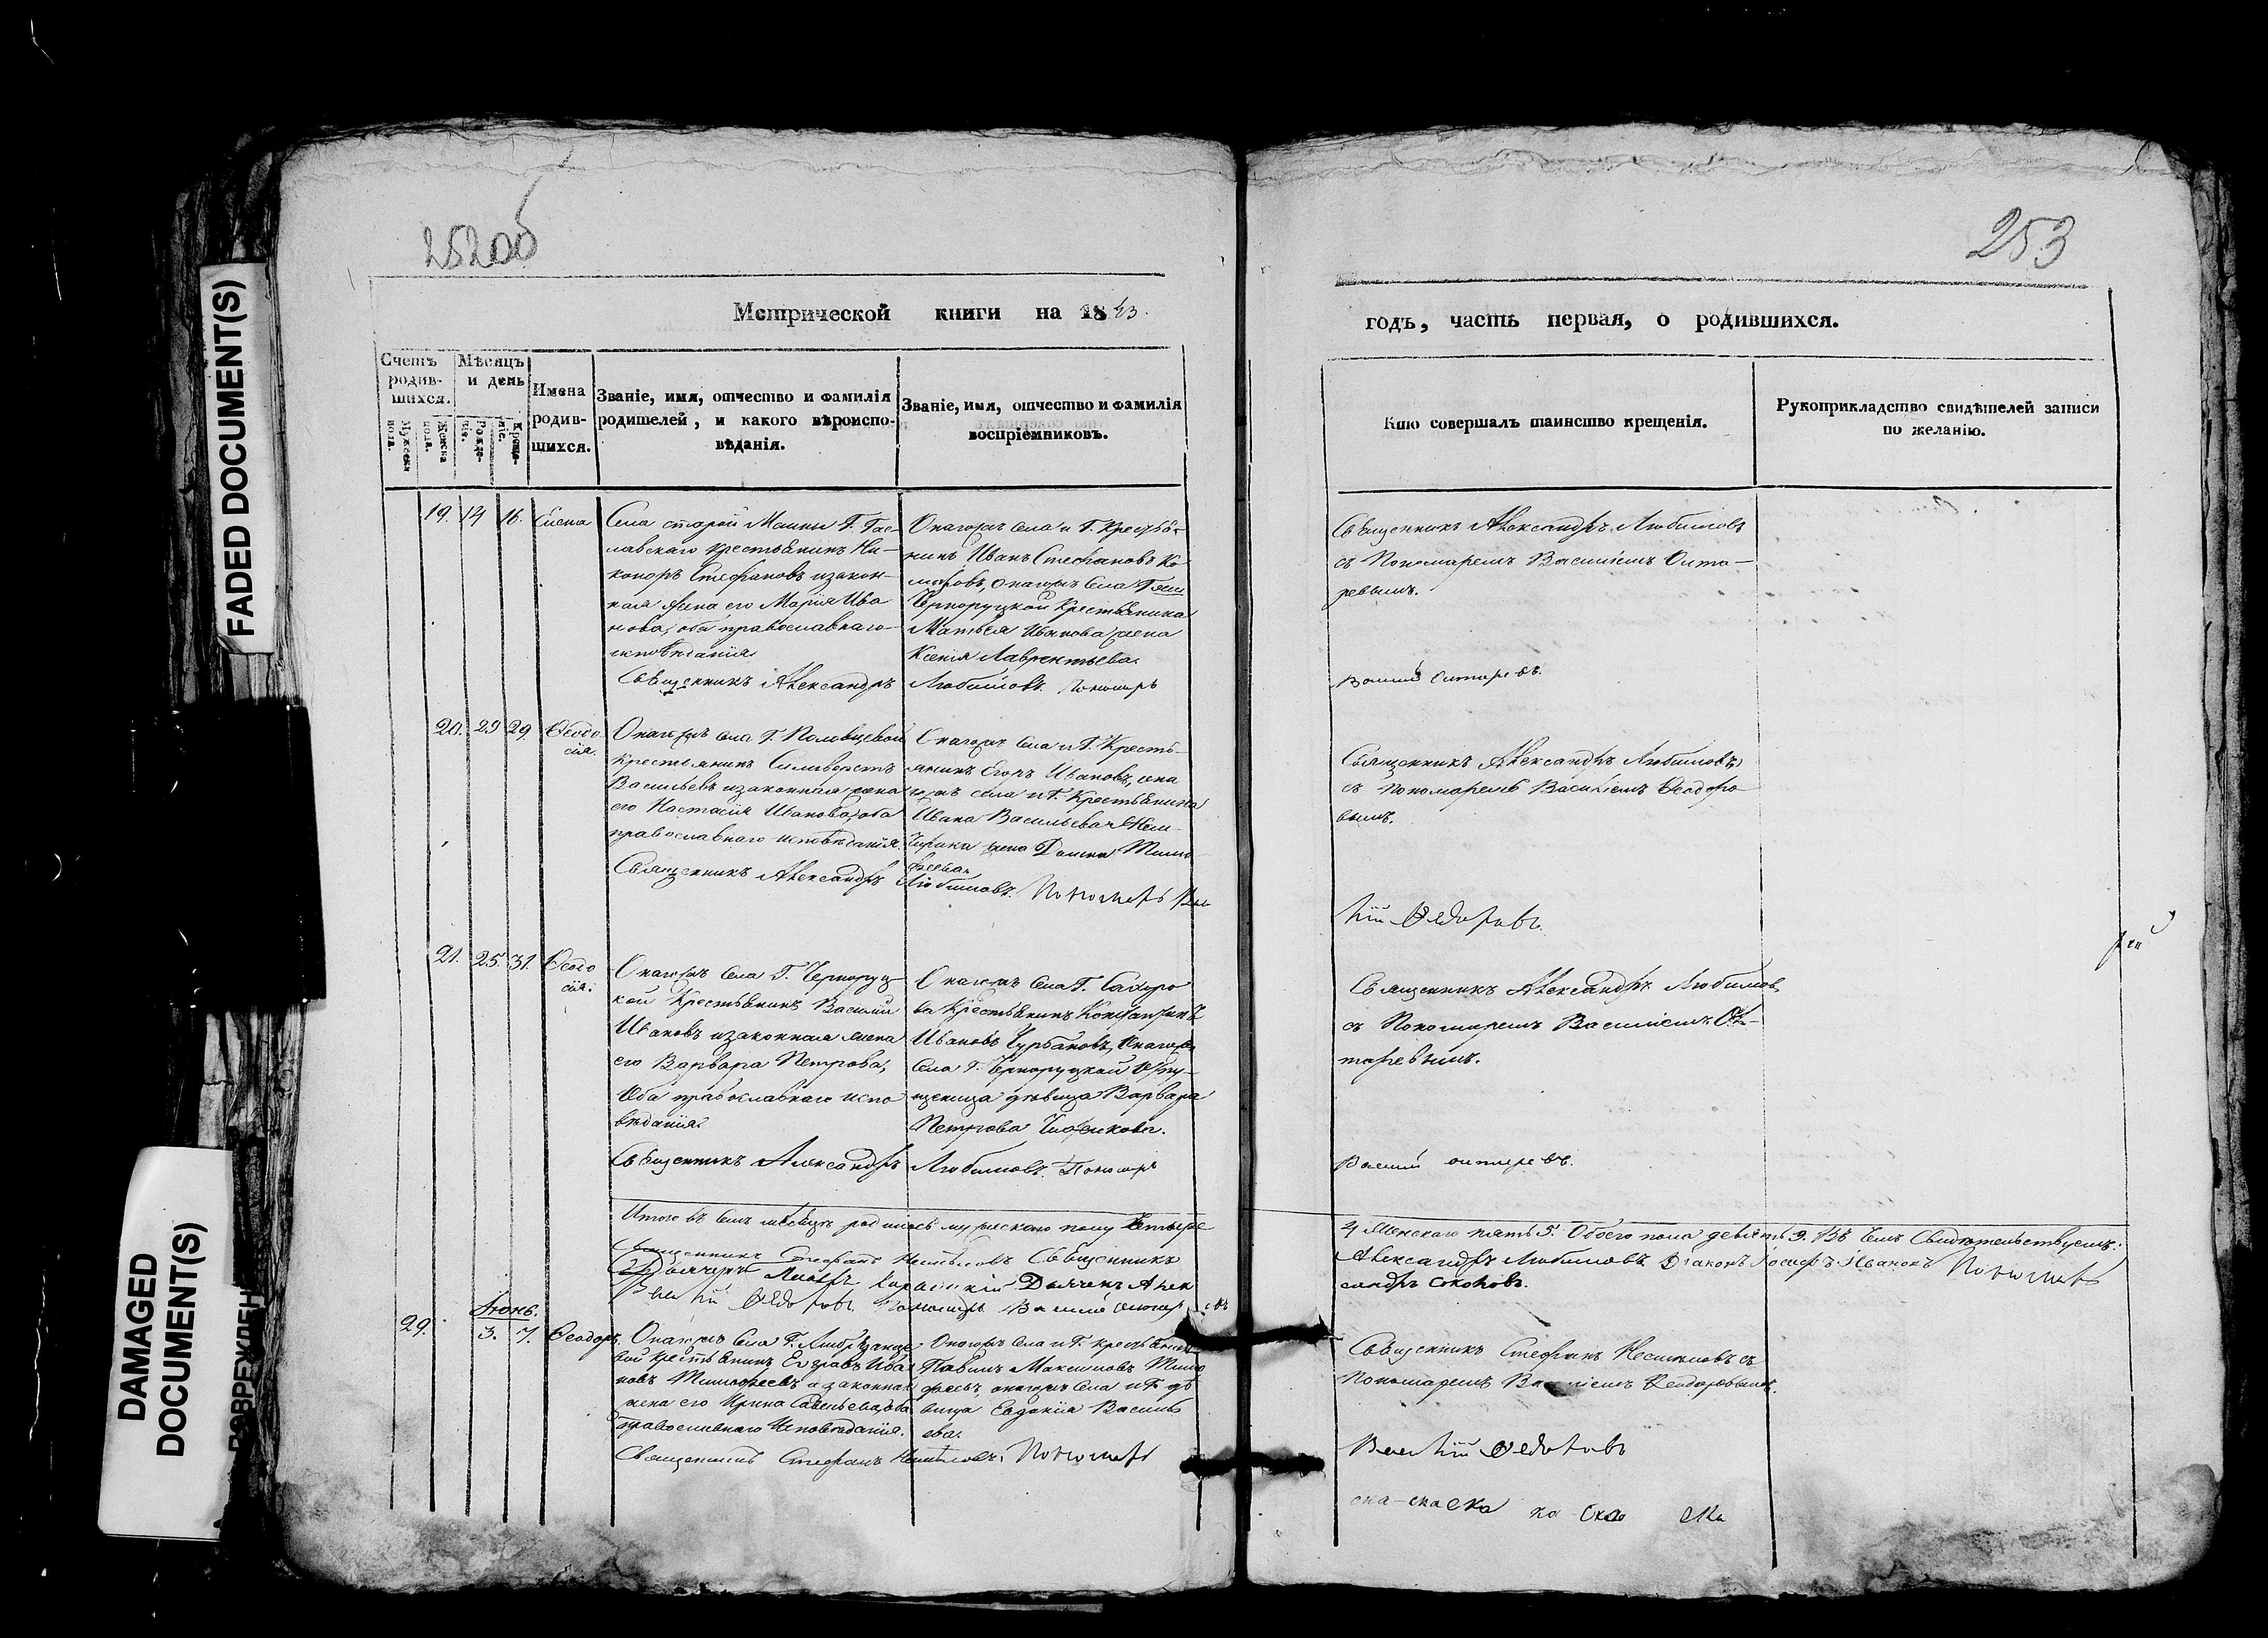 FADED DOCUMENT(S)
DAMAGED DOCUMENT(S)
252об
253
Метрической книги на 1843.
годъ, часть первая, о родившихся.
Счетъ родившихся.
Мужеска пола.
Женска пола.
Мѣсяцъ и день
Рожденіе.
Крещеніе.
Имена родившихся.
Званіе, имя, отчество и фамилія родителей, и какого вѣроисповѣданія.
Званіе, имя, отчество и фамилія воспріемниковъ.
Кто совершалъ таинство крещенія.
Рукоприкладство свидѣтелей записи по желанію.
19. 14 16. Елена
Села старой Маины Г.
лавскаго крестьянинъ Ни-
каноръ Стефановъ изакон-
ная жена его Марія Ива
нова, оба православнаго
исповѣданія
Онагожъ села и Г. Крестья-
нинъ Иванъ Стефановъ Ко
маровъ, онагожъ села Г
Черноруцкой Крестьянина
Матвѣя Иванова жена
Ксенія Лаврентьева.
Священникъ Александръ Любимовъ. Пономарь
Священникъ Александръ Любимовъ
съ Пономаремъ Василіемъ Окта-
ревымъ.
20. 29 29. Ѳеодо
сія.
Онагожъ села Г. Половцевой
крестьянинъ Сильверстъ
Васильевъ изаконная жена
его Настасія Иванова, оба
православнаго исповѣданія.
Онагожъ села и Г. Кресть-
янинъ Егоръ Ивановъ, она
гожъ села и Г. Крестьянина
Ивана Васильева
жена Домна Тимо
феева.
Священникъ Александръ Любимовъ. Пономарь Васи
Священникъ Александръ Любимовъ
съ Пономаремъ Василіемъ Ѳеодоро
вымъ.
лій Ѳедоровъ.
21. 25. 31. Ѳеодо
сія.
Онагожъ села Г. Черноруц-
кой Крестьянинъ Василій
Ивановъ изаконная жена
его Варвара Петрова,
Оба православнаго испо
вѣданія
Онагожъ села Г. Сахаро
ва Крестьянинъ Константинъ
Ивановъ Курбановъ, Онагожъ
села Г. Черноруцкой
дѣвица Варвара
Петрова
Священникъ Александръ Любимовъ. Пономарь
Священникъ Александръ Любимовъ
съ Пономаремъ Василіемъ Ок-
таревымъ.
Итого въ семъ мѣсяцѣ родилось мужескаго полу Четыре
4 Женскаго пять 5. Обоего пола девять 9. Въ чемъ Свидѣтельствуемъ:
Священникъ Стефанъ Священникъ
Александръ Любимовъ Діаконъ Іосифъ Ивановъ Пономарь
Дьячекъ Алек
сандръ Соколовъ.
Василій Ѳедоровъ. Пономарь Василій
Іюнь.
29. 3. 7. Ѳеодоръ.
Онагожъ Села Г.
вой крестьянинъ Ива
новъ Тимофеевъ изаконная
жена его Ирина Савельева, оба
православнаго Исповѣданія.
Онагожъ Села и Г. крестьянинъ
Павелъ Максимовъ Тимо
феевъ, онагожъ Села и Г. дѣ
вица Евдокія Василь
ева.
Священникъ Стефанъ Пономарь
Священникъ Стефанъ съ
Пономаремъ Василіемъ Ѳеодоровымъ.
Василій Ѳедоровъ